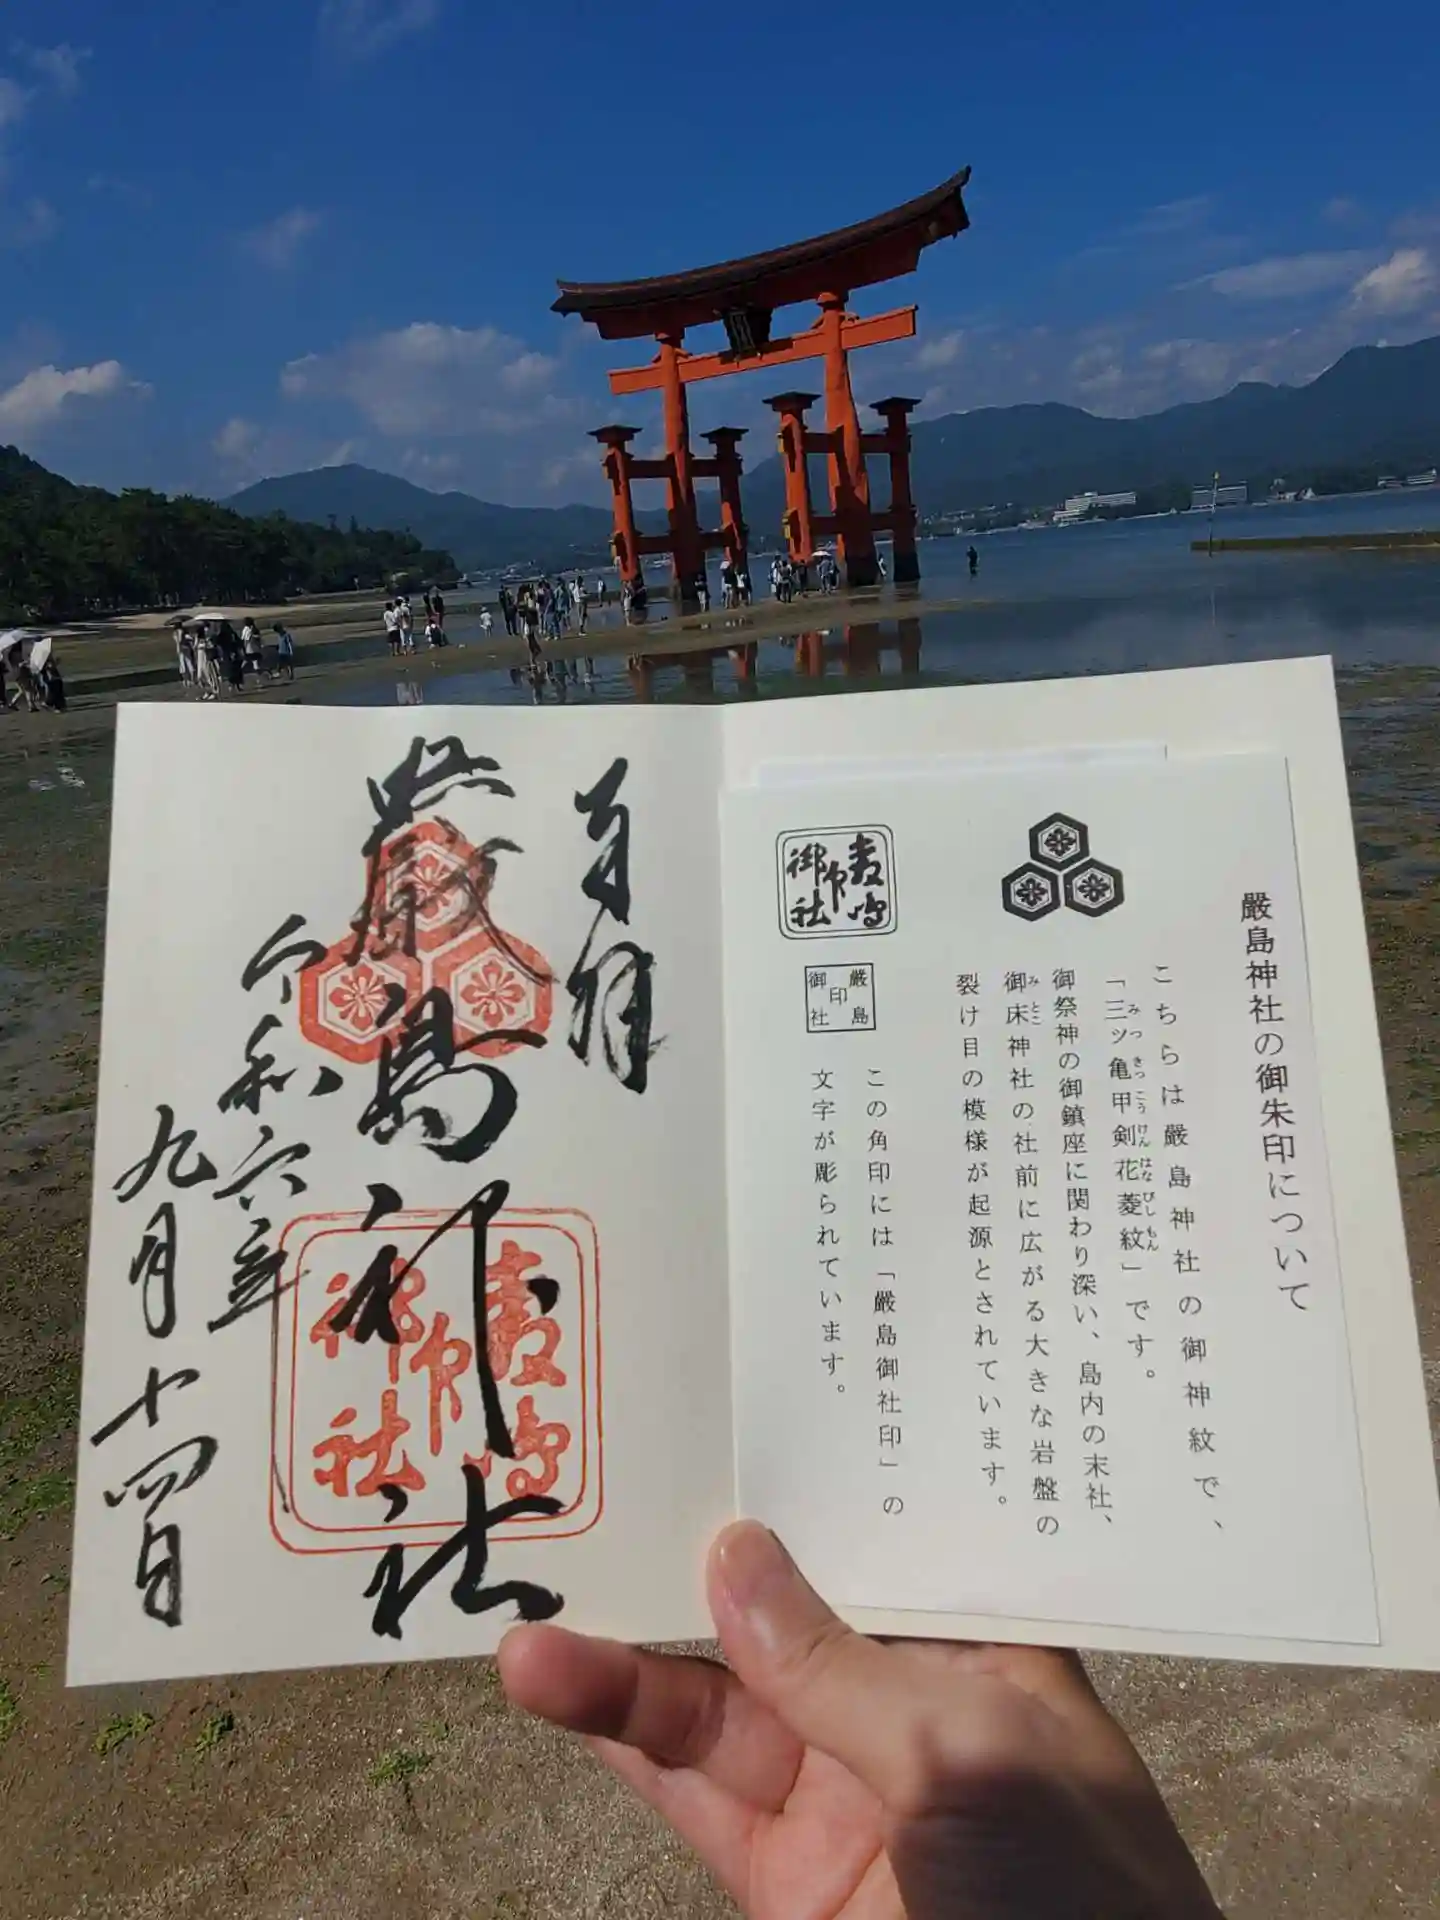 厳島神社の御朱印について
こちらは厳島神社の御神紋で、
「三ッ亀甲剣花菱紋」です。
みつ きっこうけんはなびしもん
御祭神の御鎮座に関わり深い、島内の末社、
御床神社の社前に広がる大きな岩盤の
みとこ
裂け目の模様が起源とされています。
厳島
御社印
厳島
印
御社
この角印には「厳島御社印」の
文字が彫られています。
奉拝
厳島神社
厳島
御社印
令和六年
九月十四日